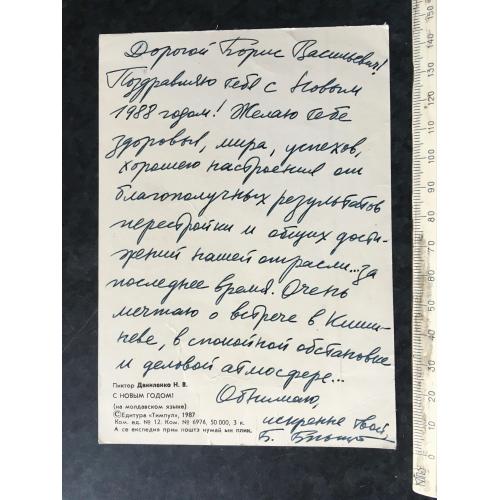 Дорогой Борис Васильевич!
Поздравляю тебя с Новым
1988 годом! Желаю тебе
здоровья, мира, успехов,
хорошего настроения от
благополучных результатов
перестройки и общих дости-
жений нашей отрасли... за
последнее время. Очень
мечтаю о встрече в Киши-
неве, в спокойной обстановке
и деловой атмосфере...
Обнимаю,
искренне твой,
Б.
Пиктор Даниленко Н. В.
С НОВЫМ ГОДОМ!
(на молдавском языке)
© Едитура «Тимпул», 1987
Ком. ед. № 12. Ком. № 6976, 50 000, 3 к.
А се експедия прин поштэ нумай ын плик.
150
140
130
120
110
100
90
80
70
60
50
40
30
20
10